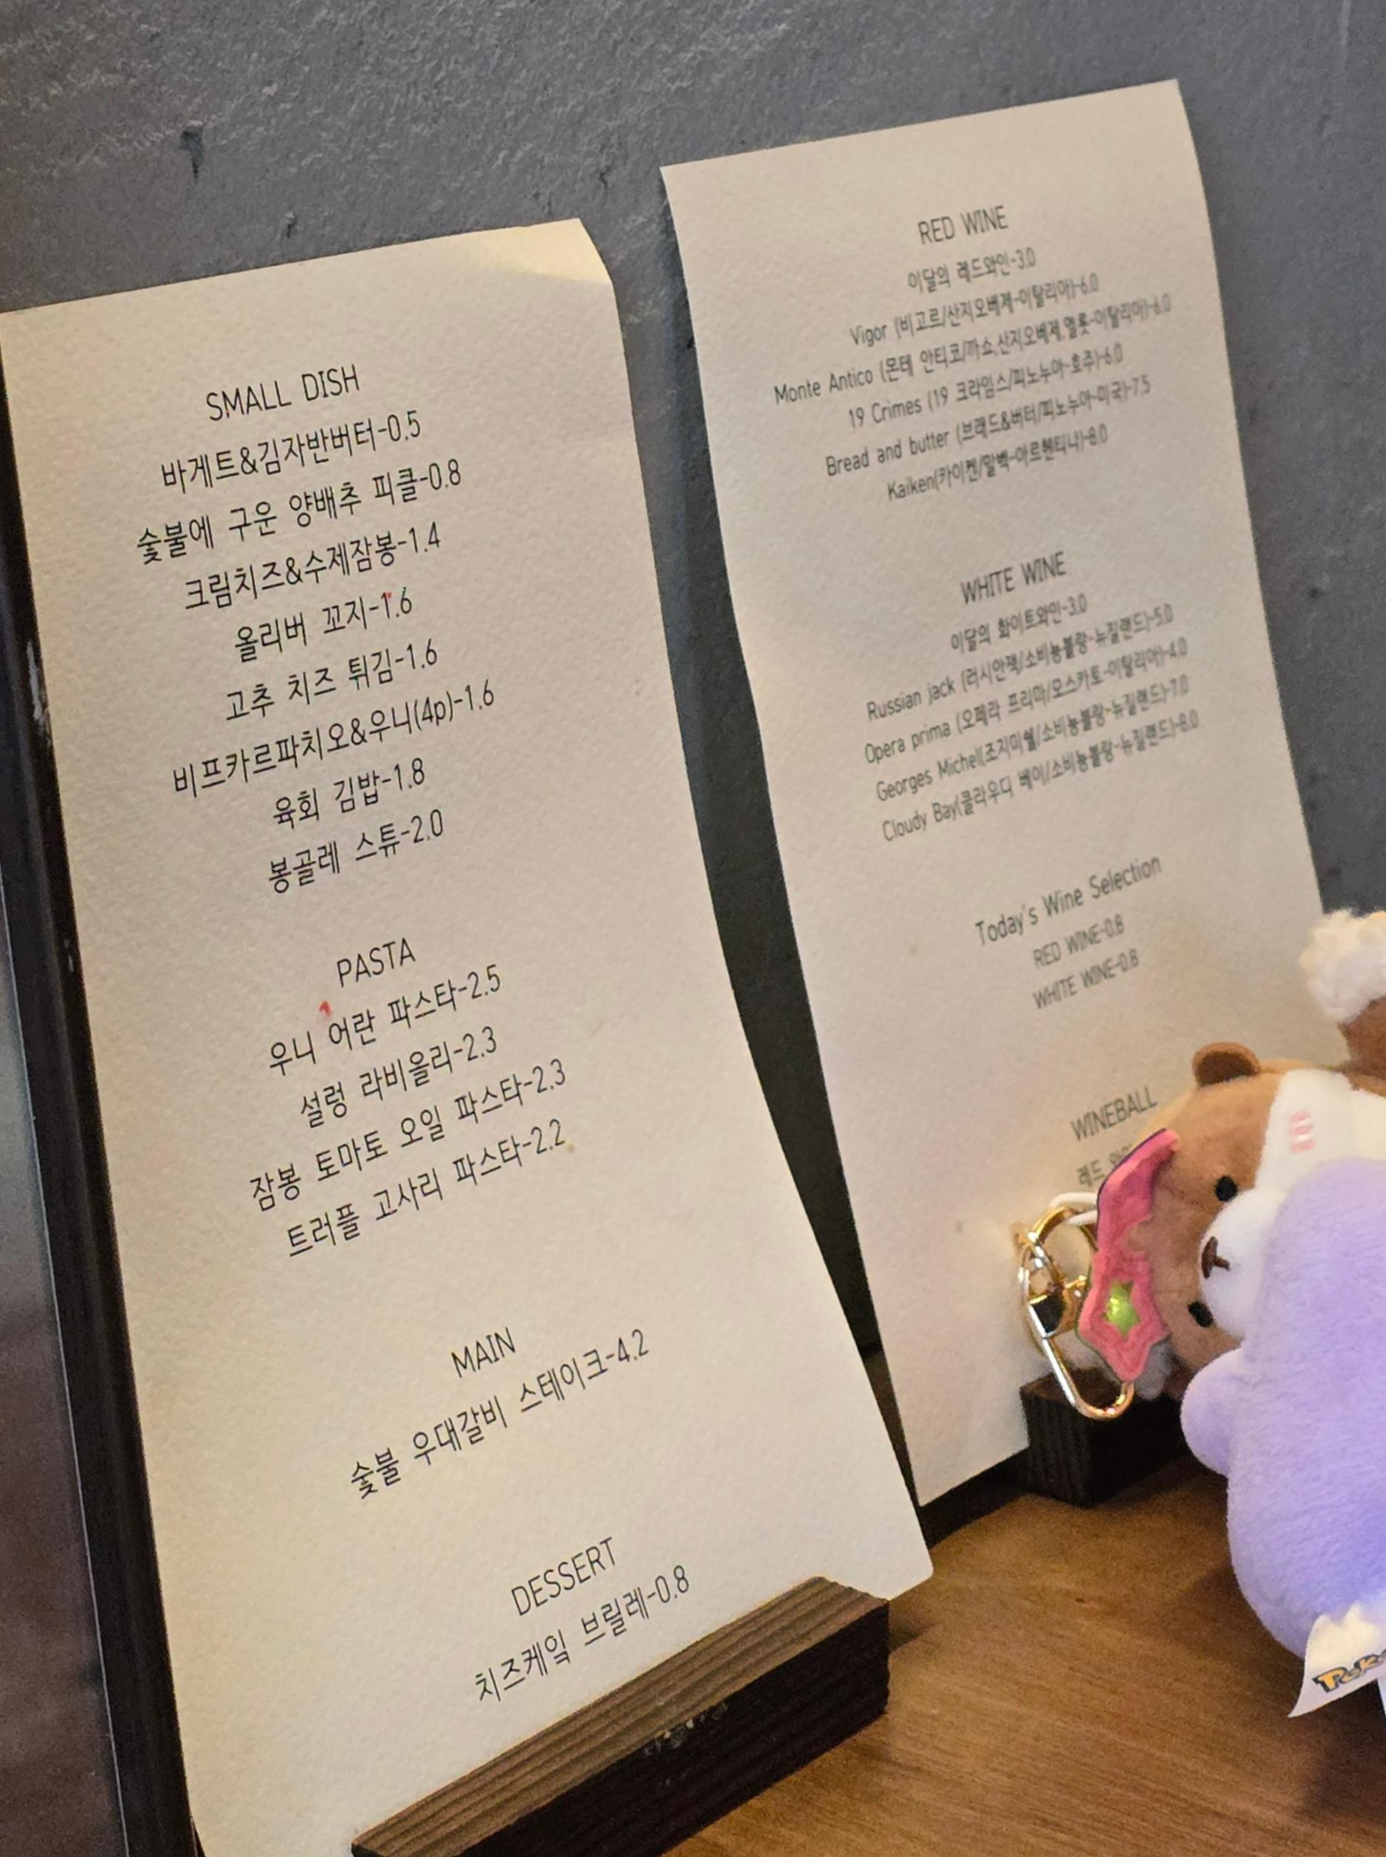 SMALL DISH
바게트&김자반버터-0.5
숯불에 구운 양배추 피클-0.8
크림치즈&수제잠봉-1.4
올리버 꼬지-1.6
고추 치즈 튀김-1.6
비프카르파치오&우니(4p)-1.6
육회 김밥-1.8
봉골레 스튜-2.0
PASTA
우니 어란 파스타-2.5
설렁 라비올리-2.3
잠봉 토마토 오일 파스타-2.3
트러플 고사리 파스타-2.2
MAIN
숯불 우대갈비 스테이크-4.2
DESSERT
치즈케잌 브릴레-0.8
RED WINE
이달의 레드와인-3.0
Vigor (비고르/산지오베제-이탈리아)-6.0
Monte Antico (몬테 안티코/까쇼,산지오베제,멜롯-이탈리아)-6.0
19 Crimes (19 크라임스/피노누아-호주)-6.0
Bread and butter (브래드&버터/피노누아-미국)-7.5
Kaiken(카이켄/말벡-아르헨티나)-8.0
WHITE WINE
이달의 화이트와인-3.0
Russian jack (러시안잭/소비뇽블랑-뉴질랜드)-5.0
Opera prima (오페라 프리마/모스카토-이탈리아)-4.0
Georges Michel(조지미쉘/소비뇽블랑-뉴질랜드)-7.0
Cloudy Bay(클라우디 베이/소비뇽블랑-뉴질랜드)-8.0
Today's Wine Selection
RED WINE-0.8
WHITE WINE-0.8
WINEBALL
레드